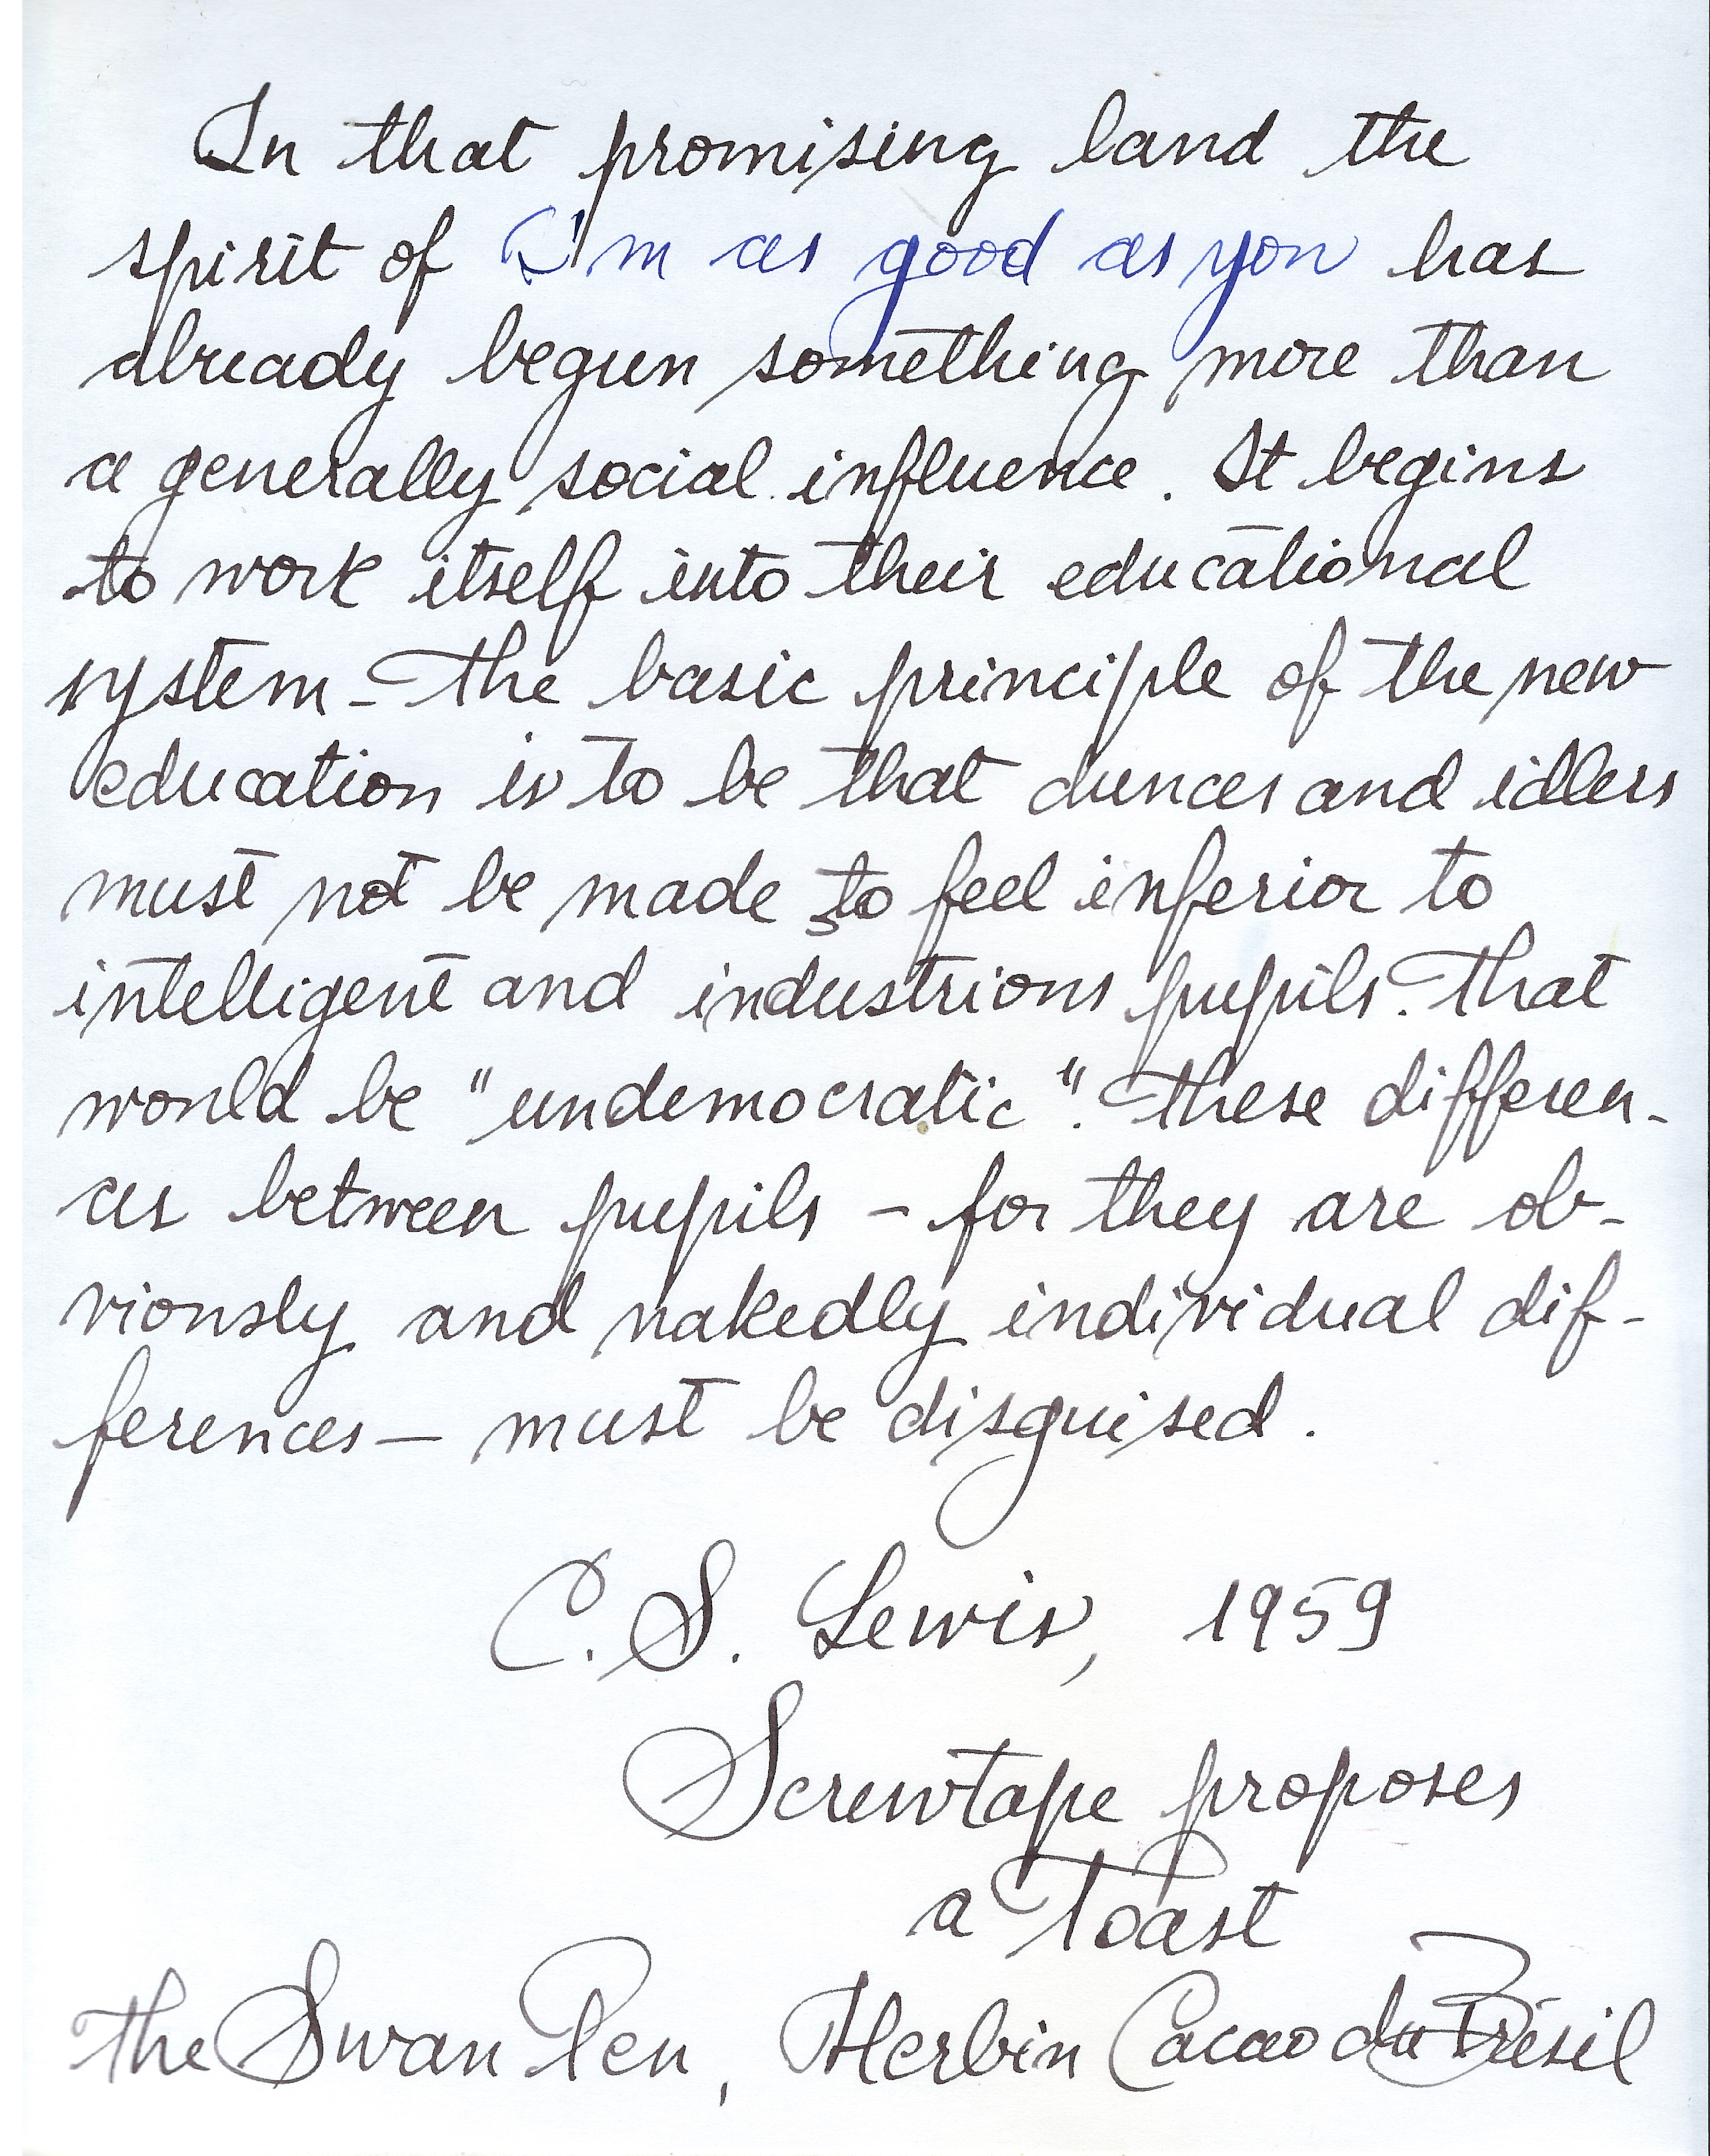 In that promising land the
spirit of I'm as good as you has
already begun something more than
a generally social influence. It begins
to work itself into their educational
system - The basic principle of the new
education is to be that dunces and idlers
must not be made to feel inferior to
intelligent and industrious pupils. That
would be "undemocratic". These differen-
ces between pupils – for they are ob-
viously and nakedly individual dif-
ferences — must be disguised.
C. S. Lewis, 1959
Screwtape proposes
a Toast
The Swan Pen, Herbin Cacao du Brésil